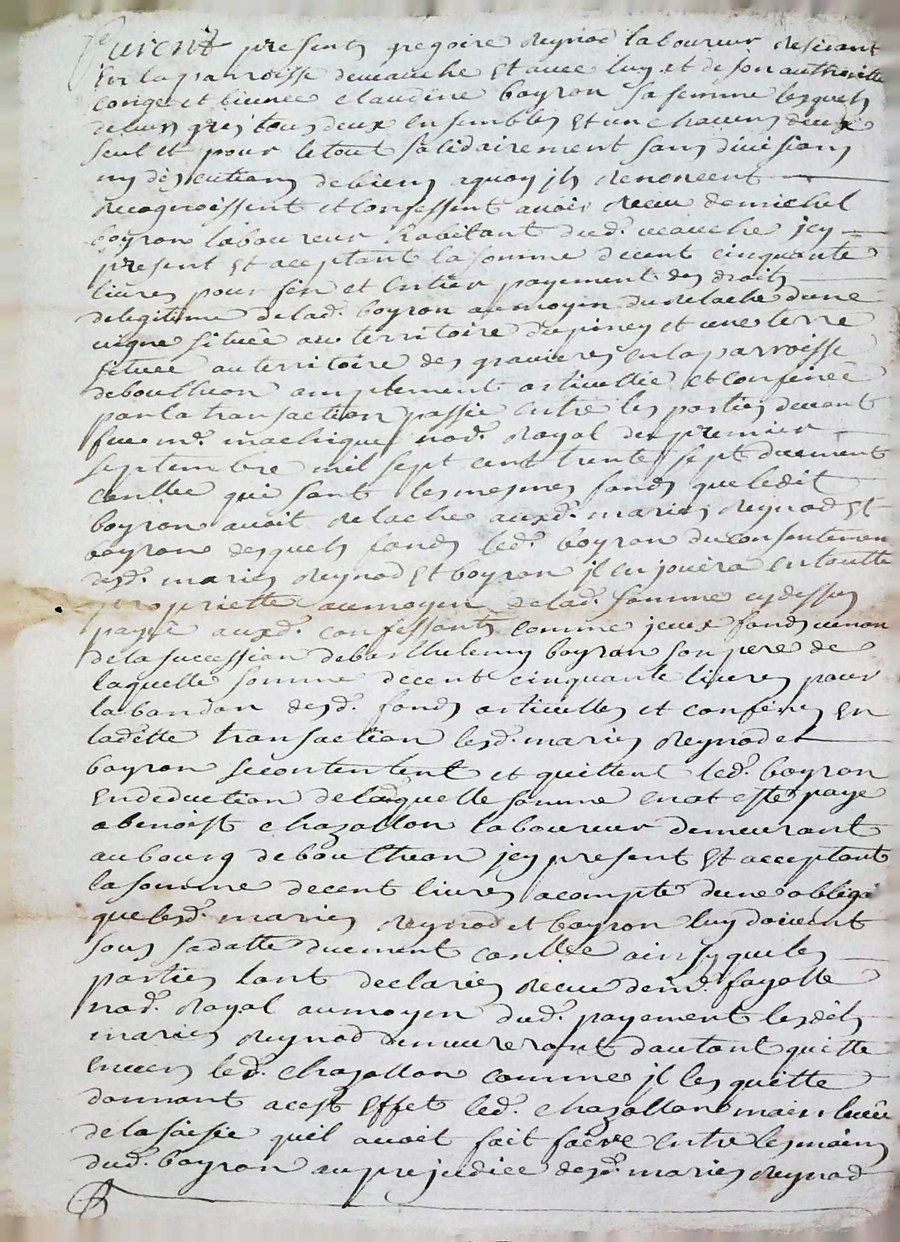 Furent presents gregoire Reynod laboureur residant
en la parroisse deveauche Et avec luy et de son authorité
congé et licence claudine boyron sa femme lesquels
deleurs gré tous deux ensembles Et un chacuns deux
seul et pour letout solidairement sans division
ny discutions debiens aquoy ils renoncent
Recognoissent et confessent avoir Receu demichel
boyron laboureur habitant dud. veauche jcy
present Et acceptant la somme decent cinquante
livres pour fin et Entier payement des droits
delegitime delad. boyron aumoyen durelache dune
vigne située au territoire depiney et une terre
située auterritoire des gravieres enlaparroisse
deboutheon amplement articullée et confinée
par la transaction passée entre les parties devant
feu me. nore. Royal du premier
septembre mil sept cent trente sept duement
conllée qui sont lesmesmes fonds queledit
boyron avoit relaché auxd. mariés Reynod Et
boyron desquels fonds led. boyron du consentemen
desd. mariés Reynod Et boyron jl enjouira entoutte
proprietté aumoyen delad. somme cydessus
payée auxd. confessants comme jceux fonds venan
delasuccession debarthelemy boyron son pere de
laquelle somme decent cinquante livres pour
labandon desd. fonds articullés et confinés En
ladette transaction lesd. mariés Reynod et
boyron secontentent et quittent led. boyron
Endeduction delaquelle somme enat esté payé
abenoist chazallon laboureur demeurant
aubourg deboutheon jcy present Et acceptant
lasomme decent livres acompte dune obliga
quelesd. mariés Reynod et boyron luy doivent
sous sadatte duement conllée ainsy que les
parties lont declarés receue deme. fayolle
nore. Royal aumoyen dud. payement lesdits
mariés Reynod demeureront dautant quitte
envers led. chazallon comme jl les quitte
donnant acest Effet led. chazallon main levée
delasaisie quil avoit fait faire entre lesmains
dud. boyron au prejudice desd. mariés Reynod